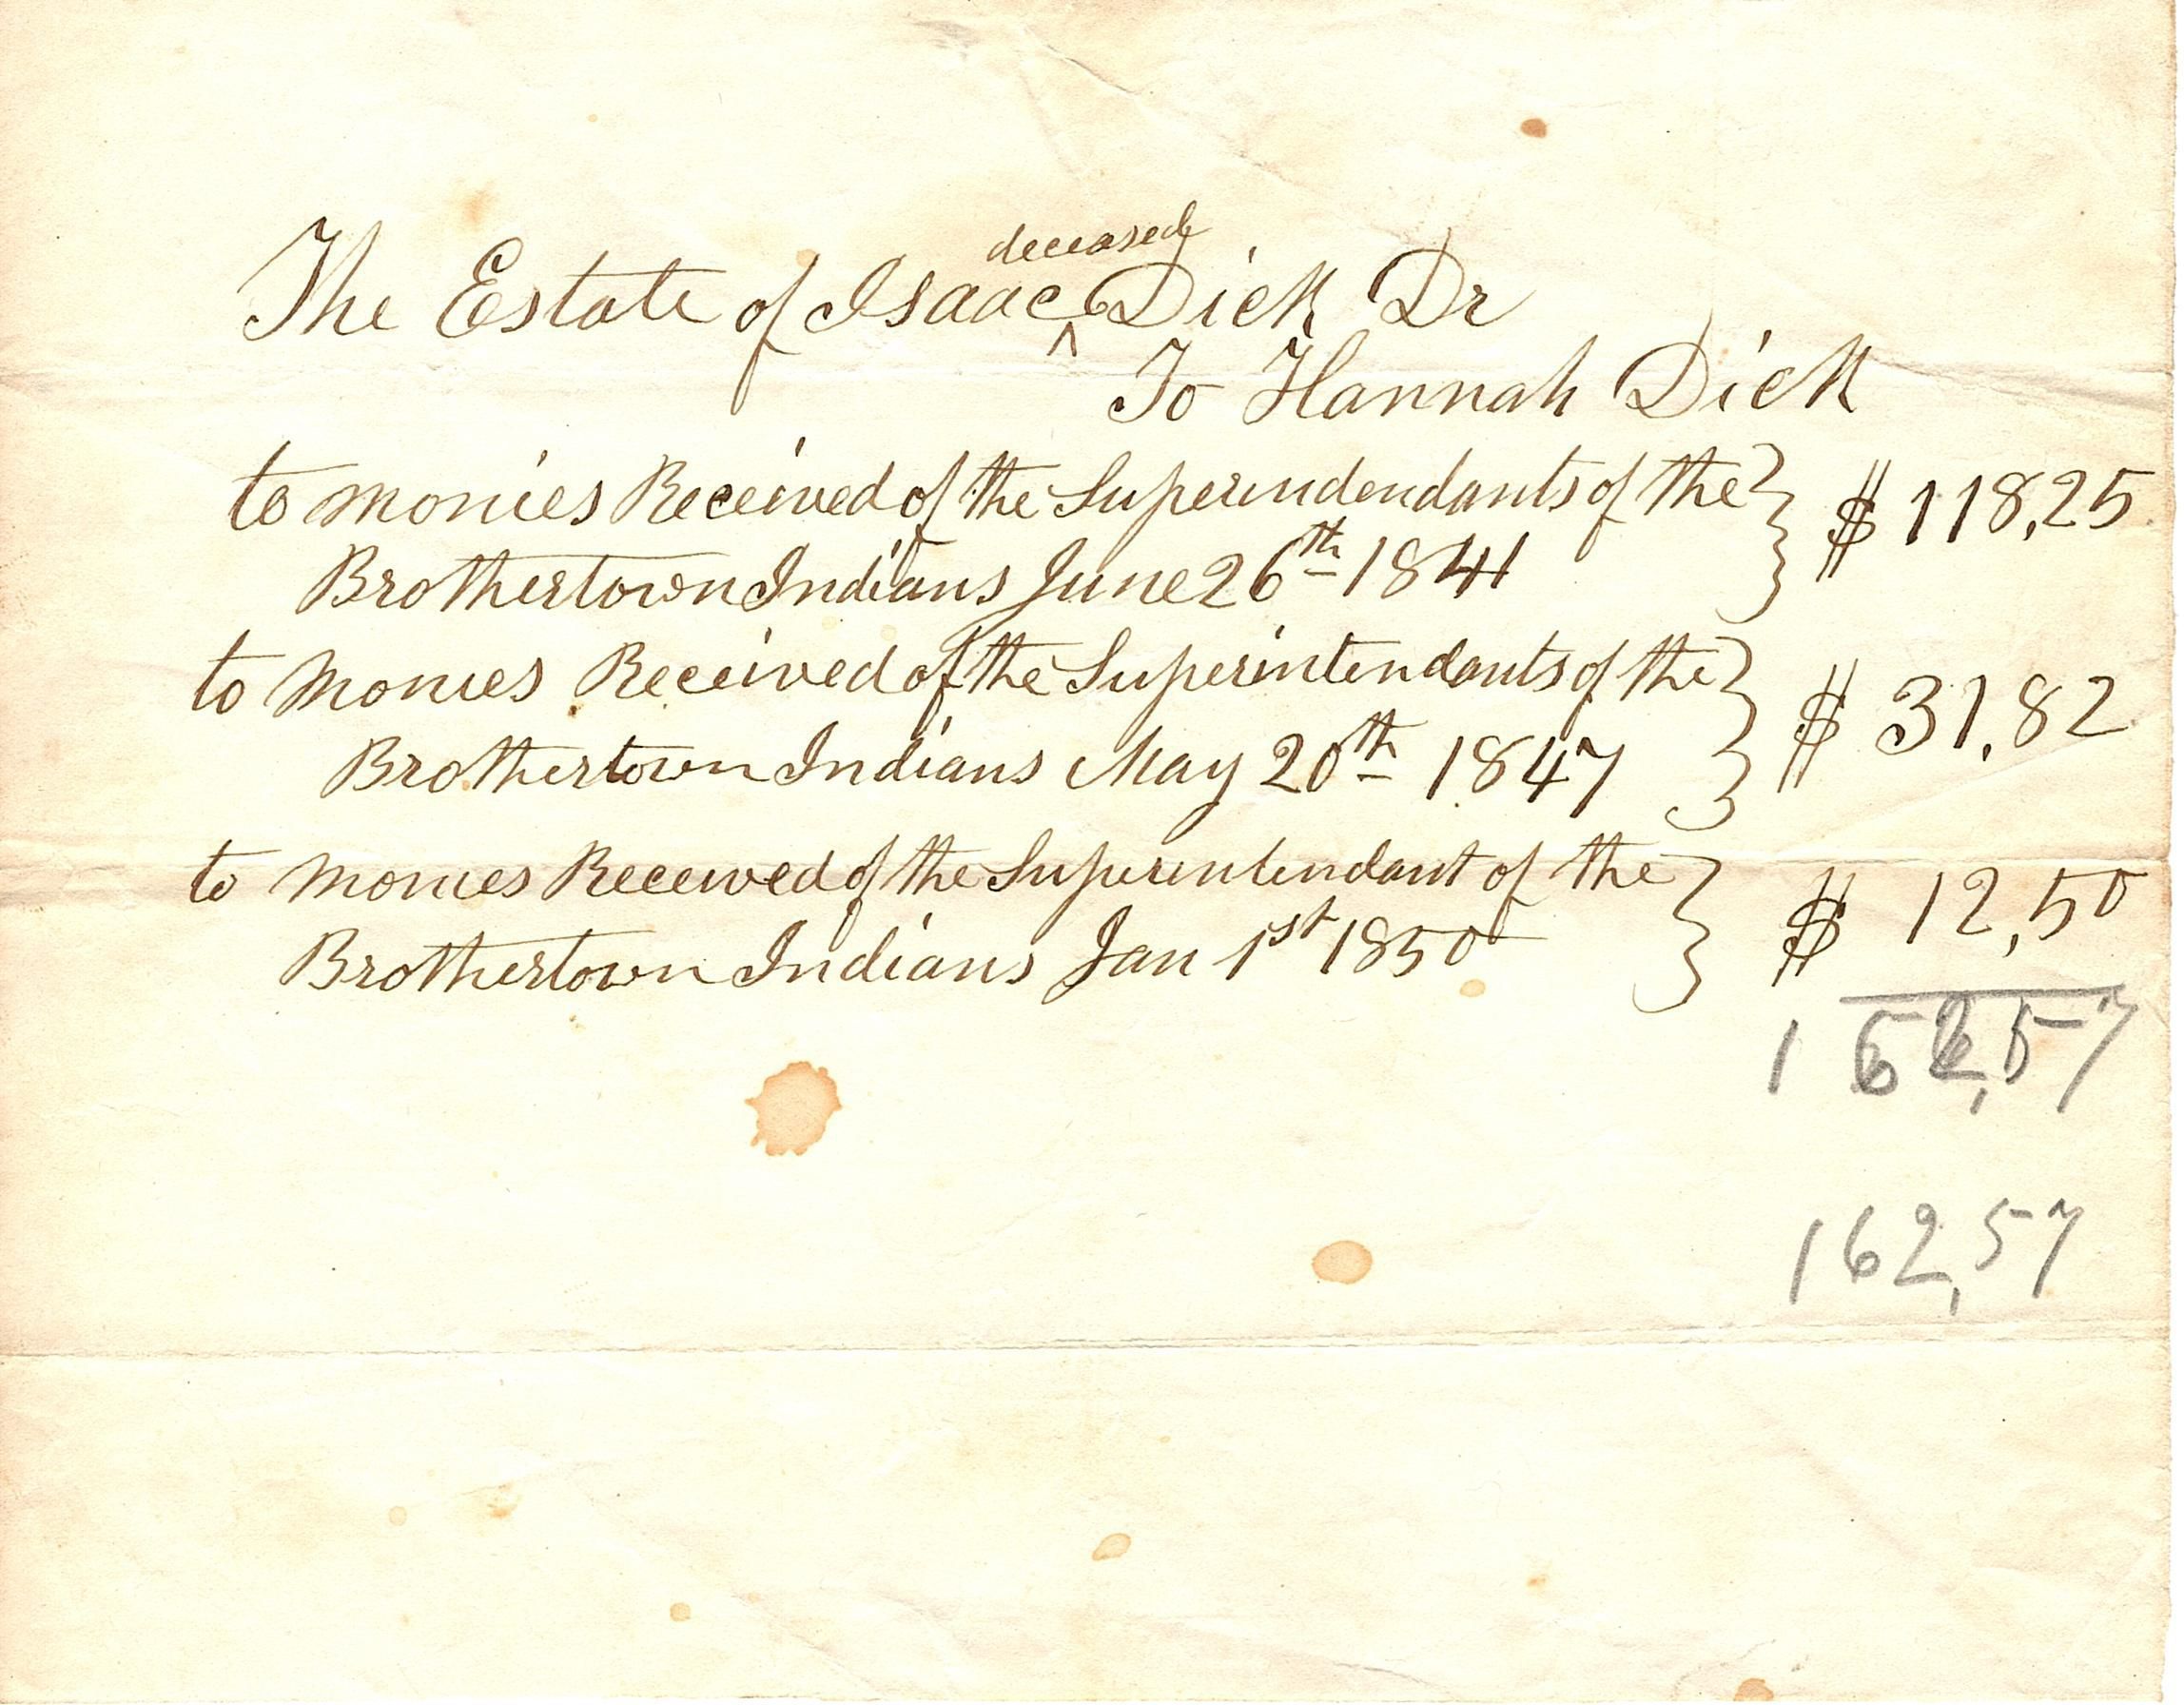 The Estate of Isaac ^deceased Dick Dr
To Hannah Dick
to monies Received of the Superindendants of the } $118,25
Brothertown Indians June 26th 1841
to Monies Received of the Superintendants of the } $ 31,82
Brothertown Indians May 20th 1847
to monies Received of the Superintendant of the } $ 12,50
Brothertown Indians Jan 1st 1850
162,57
162,57